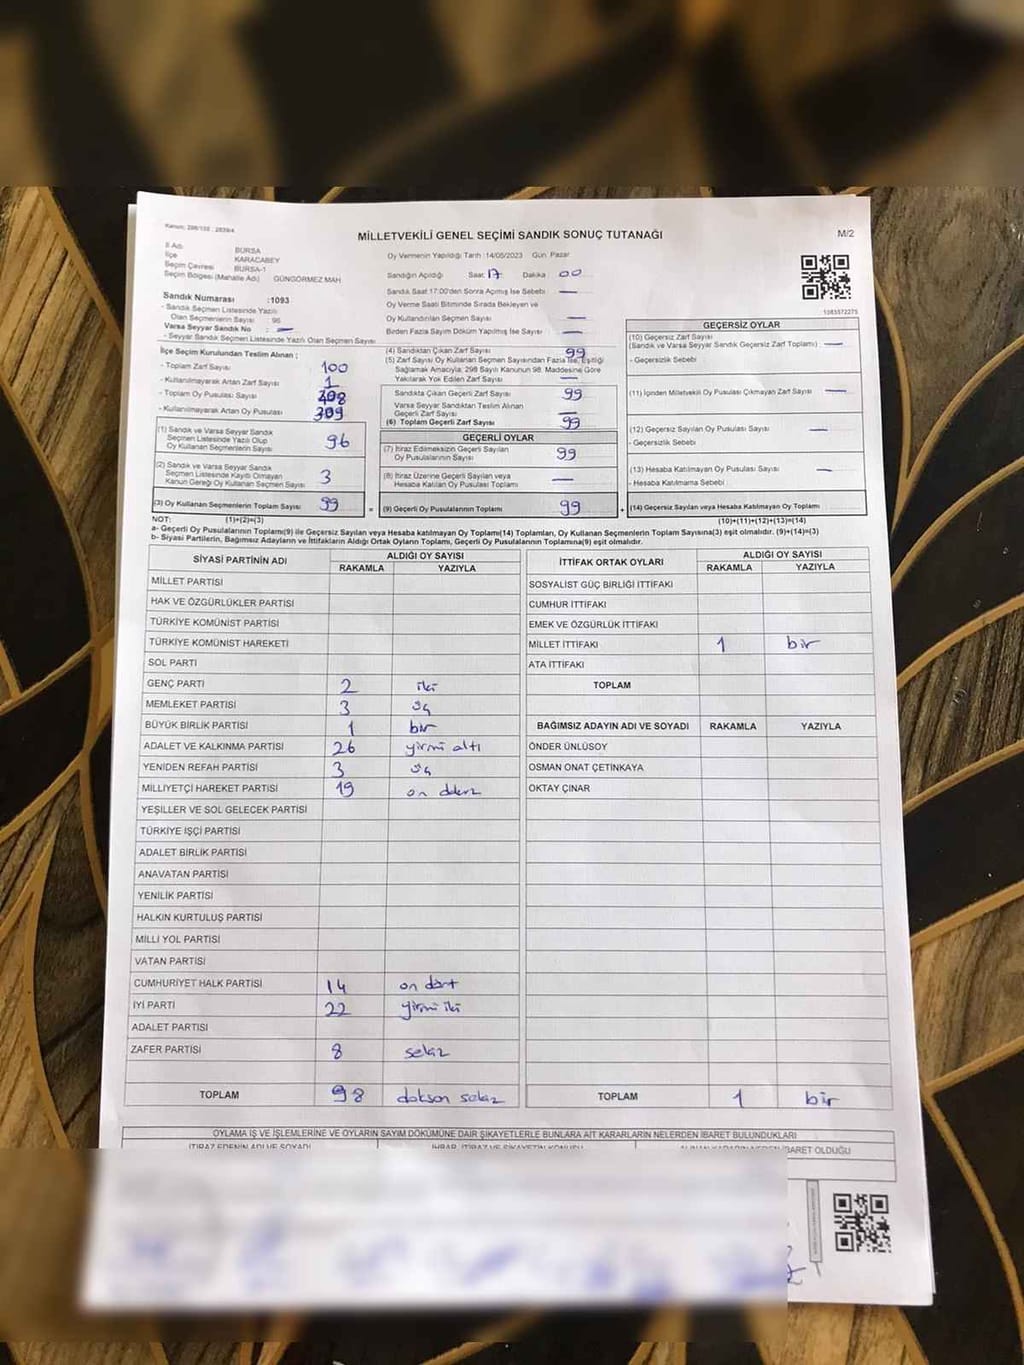 Kanun: 298/105 , 2839/4
MİLLETVEKİLİ GENEL SEÇİMİ SANDIK SONUÇ TUTANAĞI
M/2
İl Adı BURSA
İlçe KARACABEY
Seçim Çevresi BURSA-1
Seçim Bölgesi (Mahalle Adı) GÜNGÖRMEZ MAH
Sandık Numarası :1093
- Sandık Seçmen Listesinde Yazılı
Olan Seçmenlerin Sayısı : 96
Varsa Seyyar Sandık No : —
- Seyyar Sandık Seçmen Listesinde Yazılı Olan Seçmen Sayısı
Oy Vermenin Yapıldığı Tarih :14/05/2023 Gün :Pazar
Sandığın Açıldığı Saat 17 Dakika 00
Sandık Saat 17:00'den Sonra Açılmış İse Sebebi —
Oy Verme Saati Bitiminde Sırada Bekleyen ve
Oy Kullandırılan Seçmen Sayısı —
Birden Fazla Sayım Döküm Yapılmış İse Sayısı —
1383572275
İlçe Seçim Kurulundan Teslim Alınan ;
- Toplam Zarf Sayısı 100
- Kullanılmayarak Artan Zarf Sayısı 1
- Toplam Oy Pusulası Sayısı 408
- Kullanılmayarak Artan Oy Pusulası 309
(1) Sandık ve Varsa Seyyar Sandık
Seçmen Listesinde Yazılı Olup
Oy Kullanan Seçmenlerin Sayısı 96
(2) Sandık ve Varsa Seyyar Sandık
Seçmen Listesinde Kayıtlı Olmayan
Kanun Gereği Oy Kullanan Seçmen Sayısı 3
(3) Oy Kullanan Seçmenlerin Toplam Sayısı 99
(4) Sandıktan Çıkan Zarf Sayısı 99
(5) Zarf Sayısı Oy Kullanan Seçmen Sayısından Fazla İse, Eşitliği
Sağlamak Amacıyla; 298 Sayılı Kanunun 98. Maddesine Göre
Yakılarak Yok Edilen Zarf Sayısı —
Sandıkta Çıkan Geçerli Zarf Sayısı 99
Varsa Seyyar Sandıktan Teslim Alınan
Geçerli Zarf Sayısı —
(6) Toplam Geçerli Zarf Sayısı 99
GEÇERLİ OYLAR
(7) İtiraz Edilmeksizin Geçerli Sayılan
Oy Pusulalarının Sayısı 99
(8) İtiraz Üzerine Geçerli Sayılan veya
Hesaba Katılan Oy Pusulası Toplamı —
= (9) Geçerli Oy Pusulalarının Toplamı 99 +
GEÇERSİZ OYLAR
(10) Geçersiz Zarf Sayısı
(Sandık ve Varsa Seyyar Sandık Geçersiz Zarf Toplamı) —
- Geçersizlik Sebebi
(11) İçinden Milletvekili Oy Pusulası Çıkmayan Zarf Sayısı —
(12) Geçersiz Sayılan Oy Pusulası Sayısı —
- Geçersizlik Sebebi
(13) Hesaba Katılmayan Oy Pusulası Sayısı —
- Hesaba Katılmama Sebebi
(14) Geçersiz Sayılan veya Hesaba Katılmayan Oy Toplamı
NOT: (1)+(2)=(3) (10)+(11)+(12)+(13)=(14)
a- Geçerli Oy Pusulalarının Toplamı(9) ile Geçersiz Sayılan veya Hesaba katılmayan Oy Toplamı(14) Toplamları, Oy Kullanan Seçmenlerin Toplam Sayısına(3) eşit olmalıdır. (9)+(14)=(3)
b- Siyasi Partilerin, Bağımsız Adayların ve İttifakların Aldığı Ortak Oyların Toplamı, Geçerli Oy Pusulalarının Toplamına(9) eşit olmalıdır.
SİYASİ PARTİNİN ADI ALDIĞI OY SAYISI
RAKAMLA YAZIYLA
MİLLET PARTİSİ
HAK VE ÖZGÜRLÜKLER PARTİSİ
TÜRKİYE KOMÜNİST PARTİSİ
TÜRKİYE KOMÜNİST HAREKETİ
SOL PARTİ
GENÇ PARTİ 2 iki
MEMLEKET PARTİSİ 3 üç
BÜYÜK BİRLİK PARTİSİ 1 bir
ADALET VE KALKINMA PARTİSİ 26 yirmi altı
YENİDEN REFAH PARTİSİ 3 üç
MİLLİYETÇİ HAREKET PARTİSİ 19 on dokuz
YEŞİLLER VE SOL GELECEK PARTİSİ
TÜRKİYE İŞÇİ PARTİSİ
ADALET BİRLİK PARTİSİ
ANAVATAN PARTİSİ
YENİLİK PARTİSİ
HALKIN KURTULUŞ PARTİSİ
MİLLİ YOL PARTİSİ
VATAN PARTİSİ
CUMHURİYET HALK PARTİSİ 14 on dört
İYİ PARTİ 22 yirmi iki
ADALET PARTİSİ
ZAFER PARTİSİ 8 sekiz
TOPLAM 98 doksan sekiz
İTTİFAK ORTAK OYLARI ALDIĞI OY SAYISI
RAKAMLA YAZIYLA
SOSYALİST GÜÇ BİRLİĞİ İTTİFAKI
CUMHUR İTTİFAKI
EMEK VE ÖZGÜRLÜK İTTİFAKI
MİLLET İTTİFAKI 1 bir
ATA İTTİFAKI
TOPLAM
BAĞIMSIZ ADAYIN ADI VE SOYADI RAKAMLA YAZIYLA
ÖNDER ÜNLÜSOY
OSMAN ONAT ÇETİNKAYA
OKTAY ÇINAR
TOPLAM 1 bir
OYLAMA İŞ VE İŞLEMLERİNE VE OYLARIN SAYIM DÖKÜMÜNE DAİR ŞİKAYETLERLE BUNLARA AİT KARARLARIN NELERDEN İBARET BULUNDUKLARI
İTİRAZ EDENİN ADI VE SOYADI